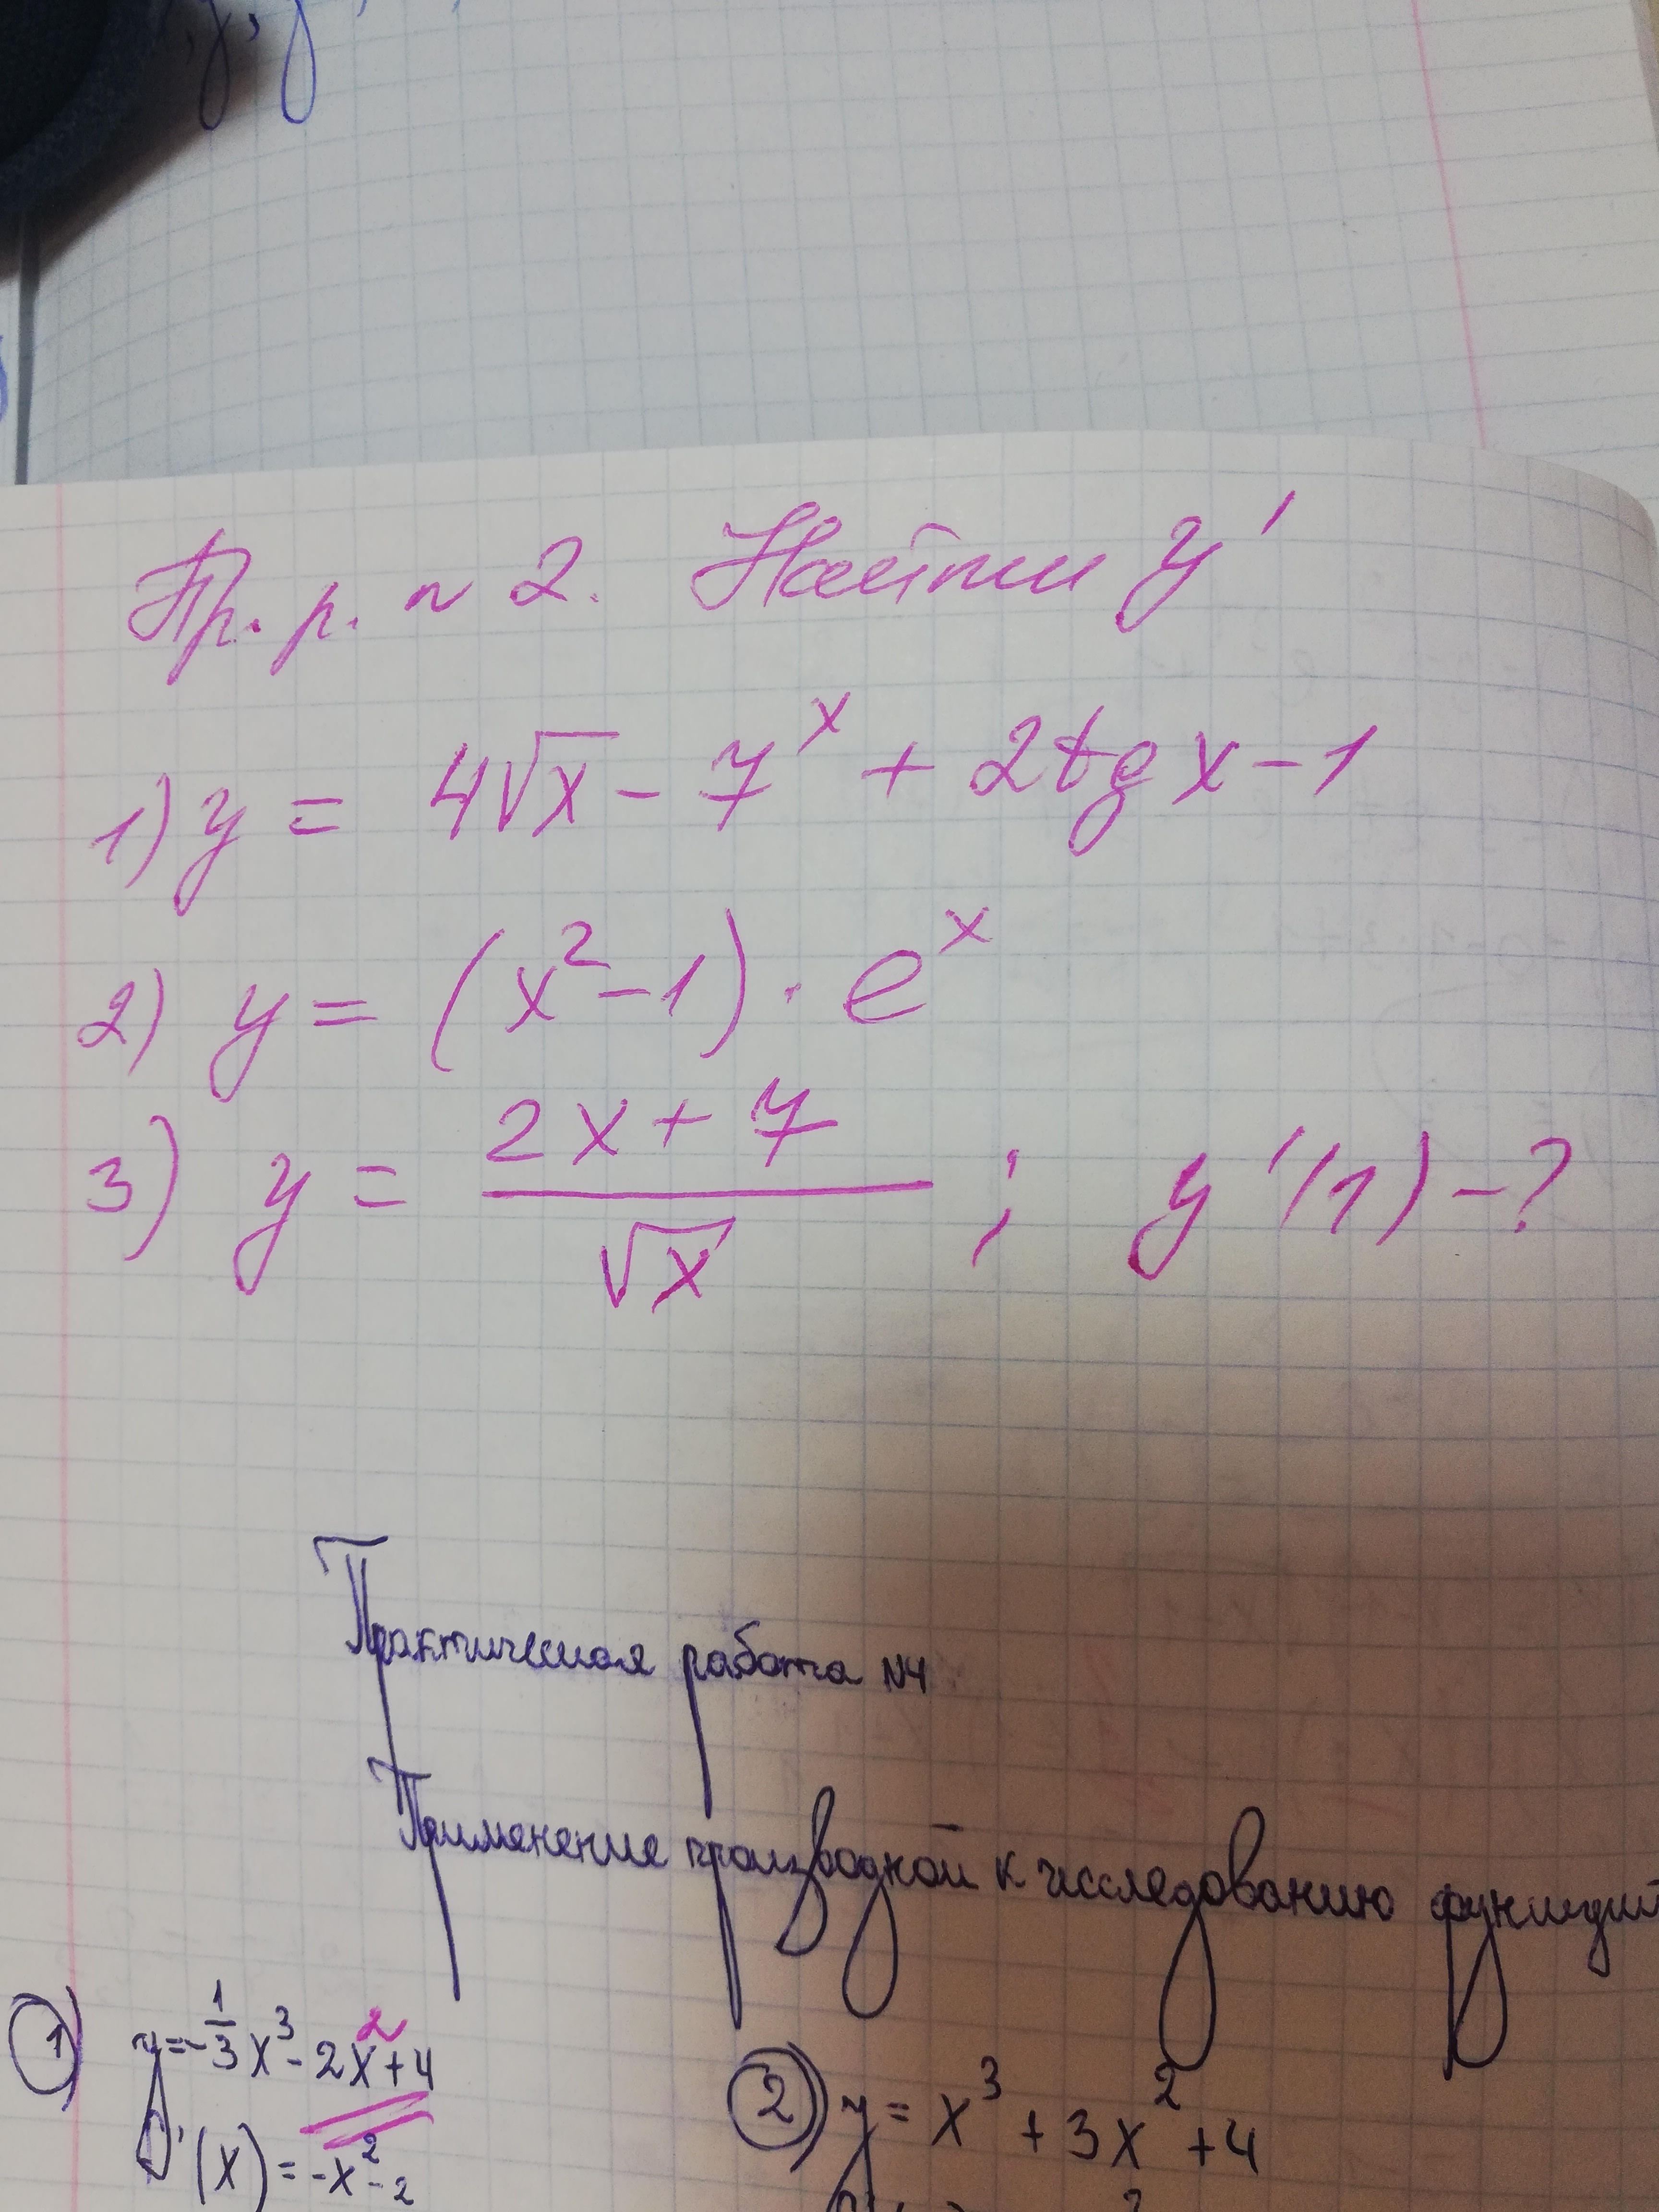 Пр. р. № 2. Найти y'
1) y = 4√x - 7^x + 2tg x - 1
2) y = (x² - 1) · e^x
3) y = (2x + 7)/√x ; y'(1) - ?
Практическая работа №4
Применение производной к исследованию функций
1) y = -1/3 x³ - 2x² + 4
y'(x) = -x² - 2
2) y = x³ + 3x² + 4